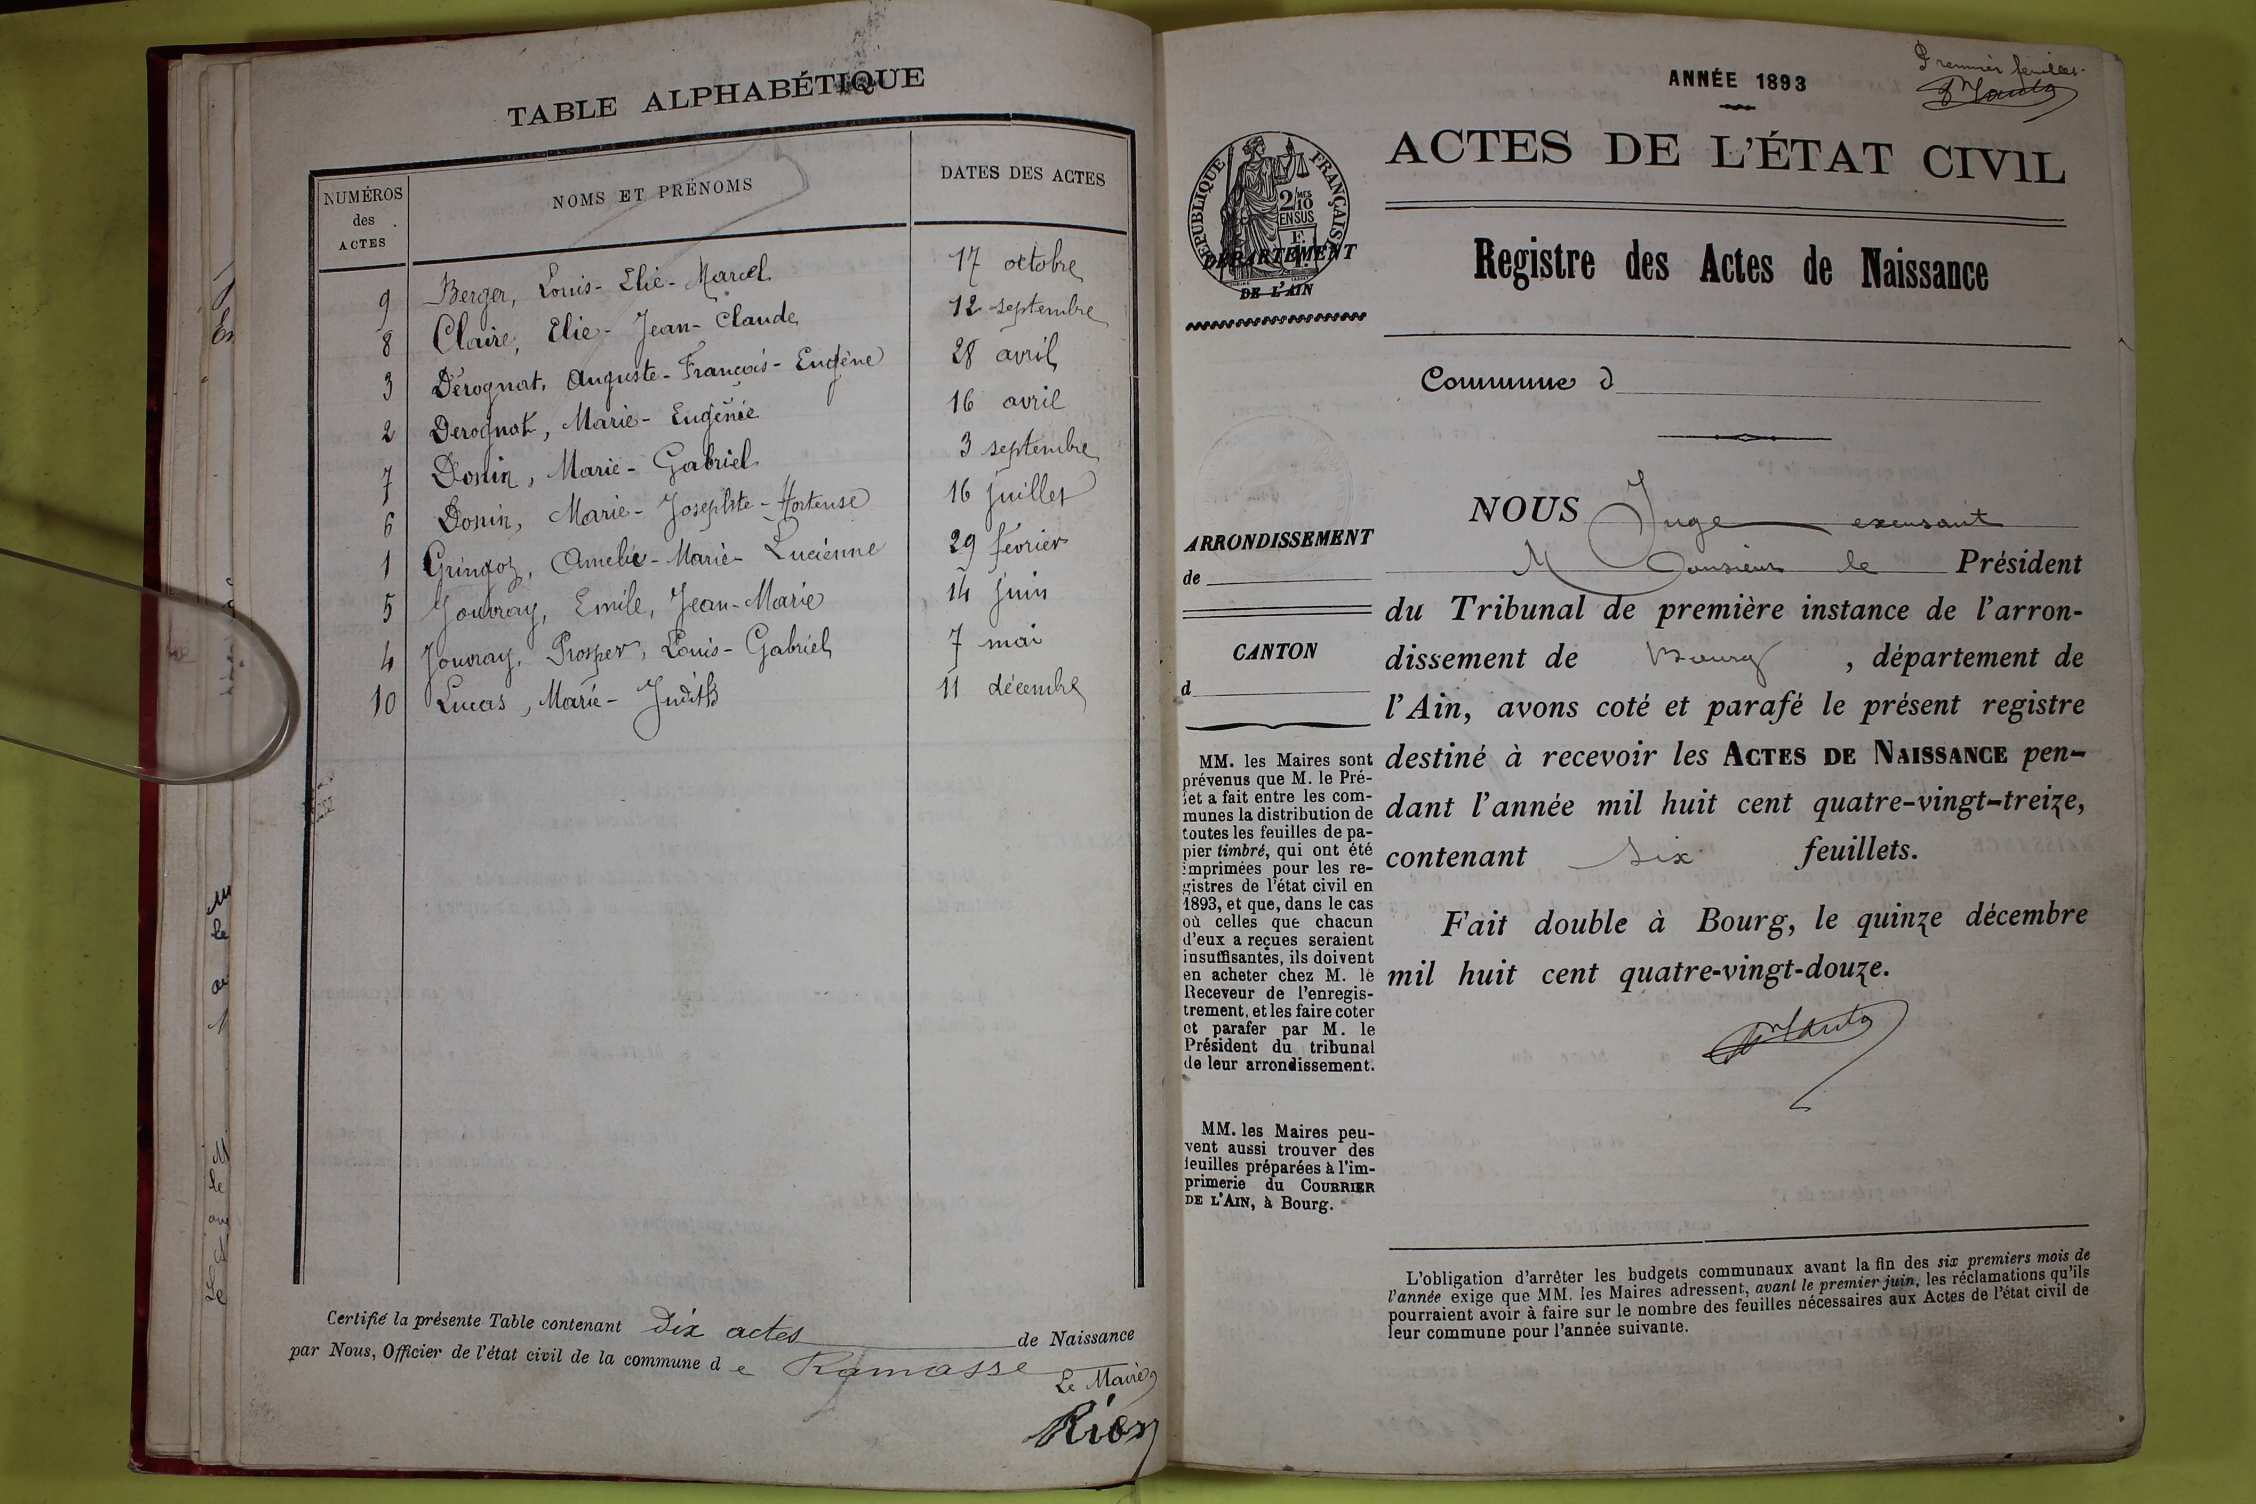 TABLE ALPHABÉTIQUE
NUMÉROS des ACTES
NOMS ET PRÉNOMS
DATES DES ACTES
9 Berger, Louis-Elie-Marcel 17 octobre
8 Claire, Elie-Jean-Claude 12 septembre
3 Dérognat, Auguste-François-Eugène 28 avril
2 Derognat, Marie-Eugénie 16 avril
7 Donin, Marie-Gabriel 3 septembre
6 Donin, Marie-Josephte-Hortense 16 juillet
1 Gringoz, Amelie-Marie-Lucienne 29 février
5 Jouvray, Emile, Jean-Marie 14 juin
4 Jouvray, Prosper, Louis-Gabriel 7 mai
10 Lucas, Marie-Judith 11 décembre
Certifié la présente Table contenant dix actes de Naissance
par Nous, Officier de l'état civil de la commune de Ramasse
Le Maire
Rion
Premier feuillet
ANNÉE 1893
ACTES DE L'ÉTAT CIVIL
RÉPUBLIQUE FRANÇAISE
2/10MES
EN SUS
DÉPARTEMENT
DE L'AIN
Registre des Actes de Naissance
Commune d
NOUS Juge excusant
Monsieur le Président
du Tribunal de première instance de l'arron-
dissement de Bourg, département de
l'Ain, avons coté et parafé le présent registre
destiné à recevoir les ACTES DE NAISSANCE pen-
dant l'année mil huit cent quatre-vingt-treize,
contenant six feuillets.
Fait double à Bourg, le quinze décembre
mil huit cent quatre-vingt-douze.
ARRONDISSEMENT
de
CANTON
d
MM. les Maires sont
prévenus que M. le Pré-
fet a fait entre les com-
munes la distribution de
toutes les feuilles de pa-
pier timbré, qui ont été
imprimées pour les re-
gistres de l'état civil en
1893, et que, dans le cas
où celles que chacun
d'eux a reçues seraient
insuffisantes, ils doivent
en acheter chez M. le
Receveur de l'enregis-
trement, et les faire coter
et parafer par M. le
Président du tribunal
de leur arrondissement.
MM. les Maires peu-
vent aussi trouver des
feuilles préparées à l'im-
primerie du COURRIER
DE L'AIN, à Bourg.
L'obligation d'arrêter les budgets communaux avant la fin des six premiers mois de
l'année exige que MM. les Maires adressent, avant le premier juin, les réclamations qu'ils
pourraient avoir à faire sur le nombre des feuilles nécessaires aux Actes de l'état civil de
leur commune pour l'année suivante.